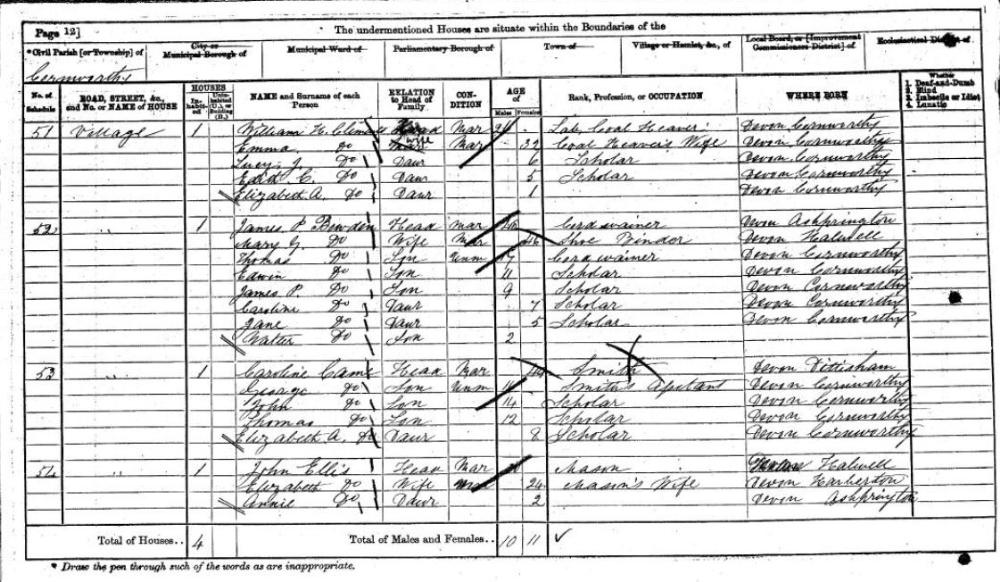 Page 12] The undermentioned Houses are situate within the Boundaries of the
* Civil Parish [or Township] of City or Municipal Borough of Municipal Ward of Parliamentary Borough of Town of Village or Hamlet, &c., of Local Board, or [Improvement Commissioners District] of Ecclesiastical District of
Cornworthy
No. of Schedule ROAD, STREET, &c., and No. or NAME of HOUSE HOUSES Inhabited Uninhabited (U.), or (B.) NAME and Surname of each Person RELATION to Head of Family CONDITION AGE of Males Females Rank, Profession, or OCCUPATION WHERE BORN Whether 1. Deaf-and-Dumb 2. Blind 3. Imbecile or Idiot 4. Lunatic
51 Village 1 William H. Head Mar Lab, Coal Heaver Devon Cornworthy
Emma Do Wife Mar 32 Coal Heaver's Wife Devon Cornworthy
Lucy J. Do Daur 6 Scholar Devon Cornworthy
Edith C. Do Daur 5 Scholar Devon Cornworthy
Elizabeth A. Do Daur 1 Devon Cornworthy
52 " 1 James P. Head Mar Cordwainer Devon Ashprington
Mary G. Do Wife Mar 46 Shoe Binder Devon Halwell
Thomas Do Son Unm Cordwainer Devon Cornworthy
Edwin Do Son 11 Scholar Devon Cornworthy
James P. Do Son 9 Scholar Devon Cornworthy
Caroline Do Daur 7 Scholar Devon Cornworthy
Jane Do Daur 5 Scholar Devon Cornworthy
Walter Do Son 2
53 " 1 Caroline Came Head Mar Smith Devon Dittisham
George Do Son Unm Smith's Devon Cornworthy
John Do Son 14 Scholar Devon Cornworthy
Thomas Do Son 12 Scholar Devon Cornworthy
Elizabeth A. Do Daur 8 Scholar Devon Cornworthy
54 " 1 John Ellis Head Mar Mason Halwell
Elizabeth Do Wife Mar 24 Mason's Wife Devon Harberton
Annie Do Daur 2 Devon Ashprington
Total of Houses.. 4 Total of Males and Females.. 10 11
* Draw the pen through such of the words as are inappropriate.